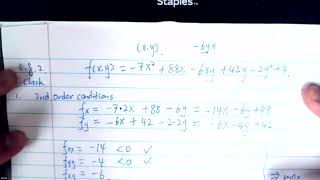 Staples
(x.y) -6yx
e.g.2. f(x,y) = -7x² + 88x - 6xy + 42y - 2y² + 4.
Check
1. 2nd Order conditions
fx = -7·2x + 88 - 6y = -14x - 6y + 88
fy = -6x + 42 - 2·2y = -6x - 4y + 42
fxx = -14 < 0 ✓
fyy = -4 < 0 ✓
fxy = -6